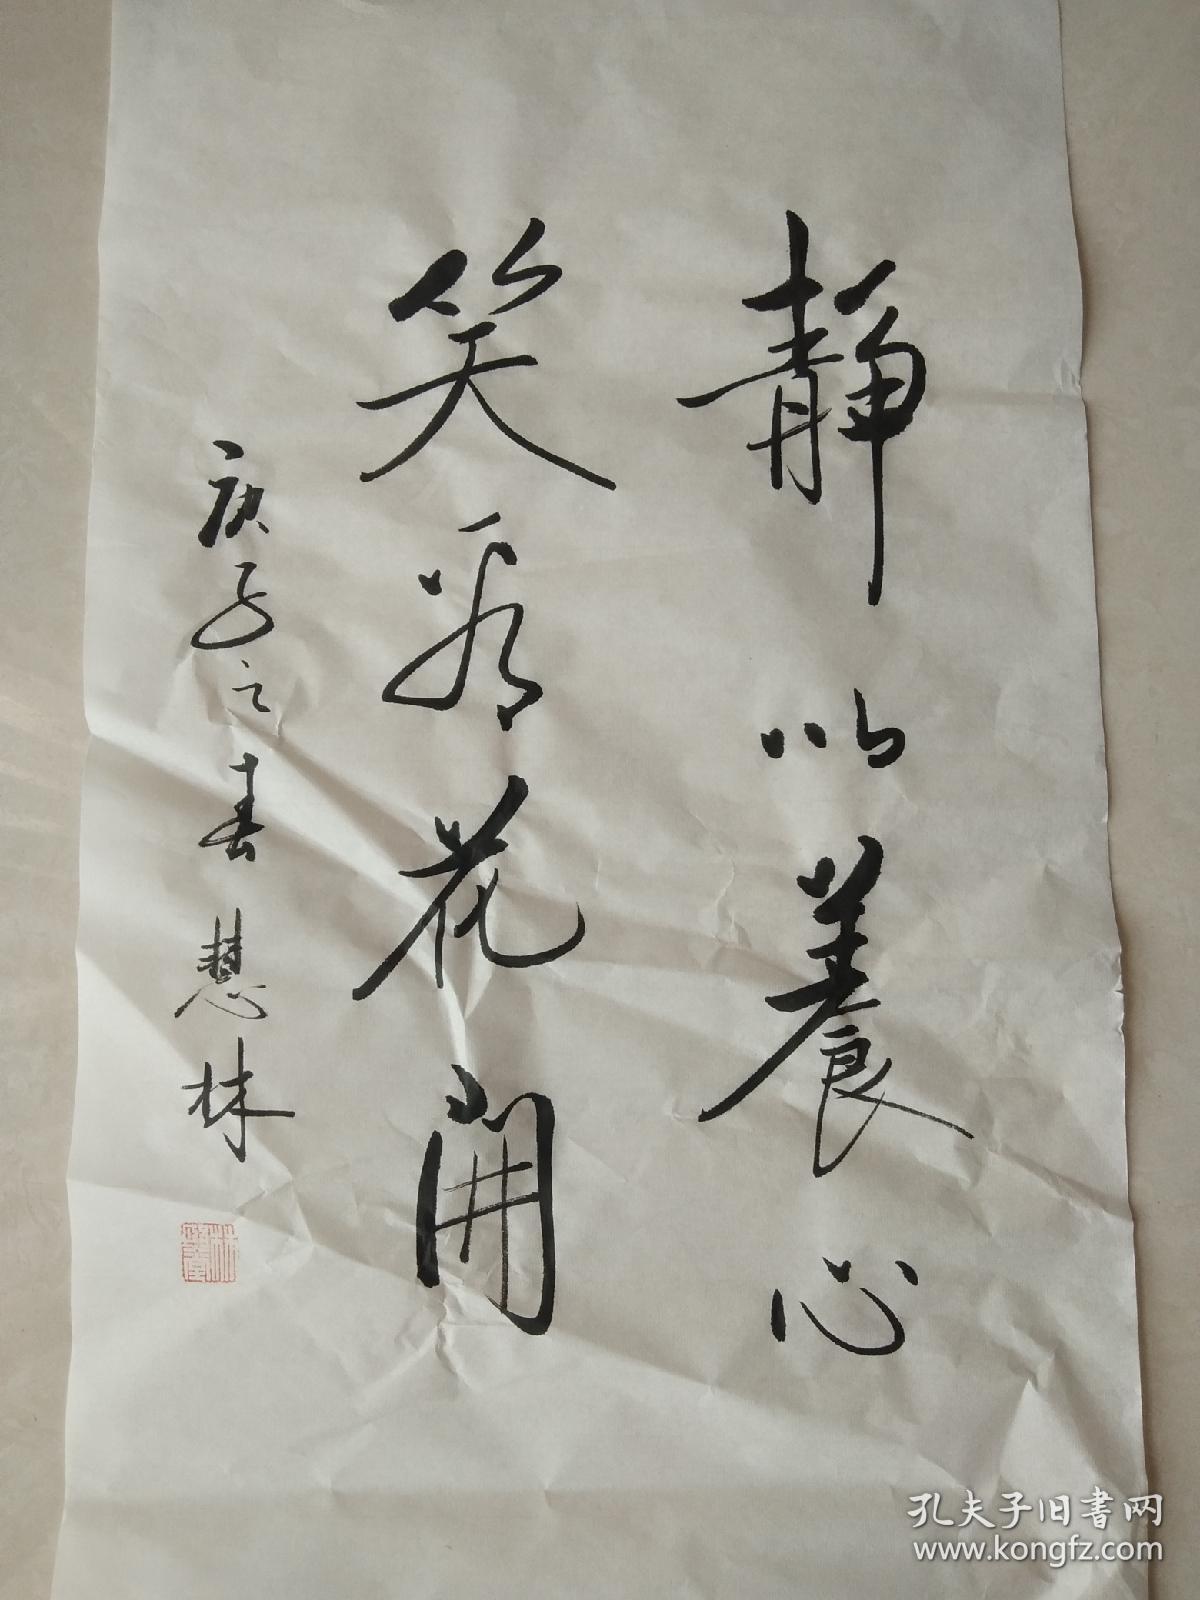 靜以養心
笑看花開
庚子之春慧林
孔夫子旧書网
www.kongfz.com